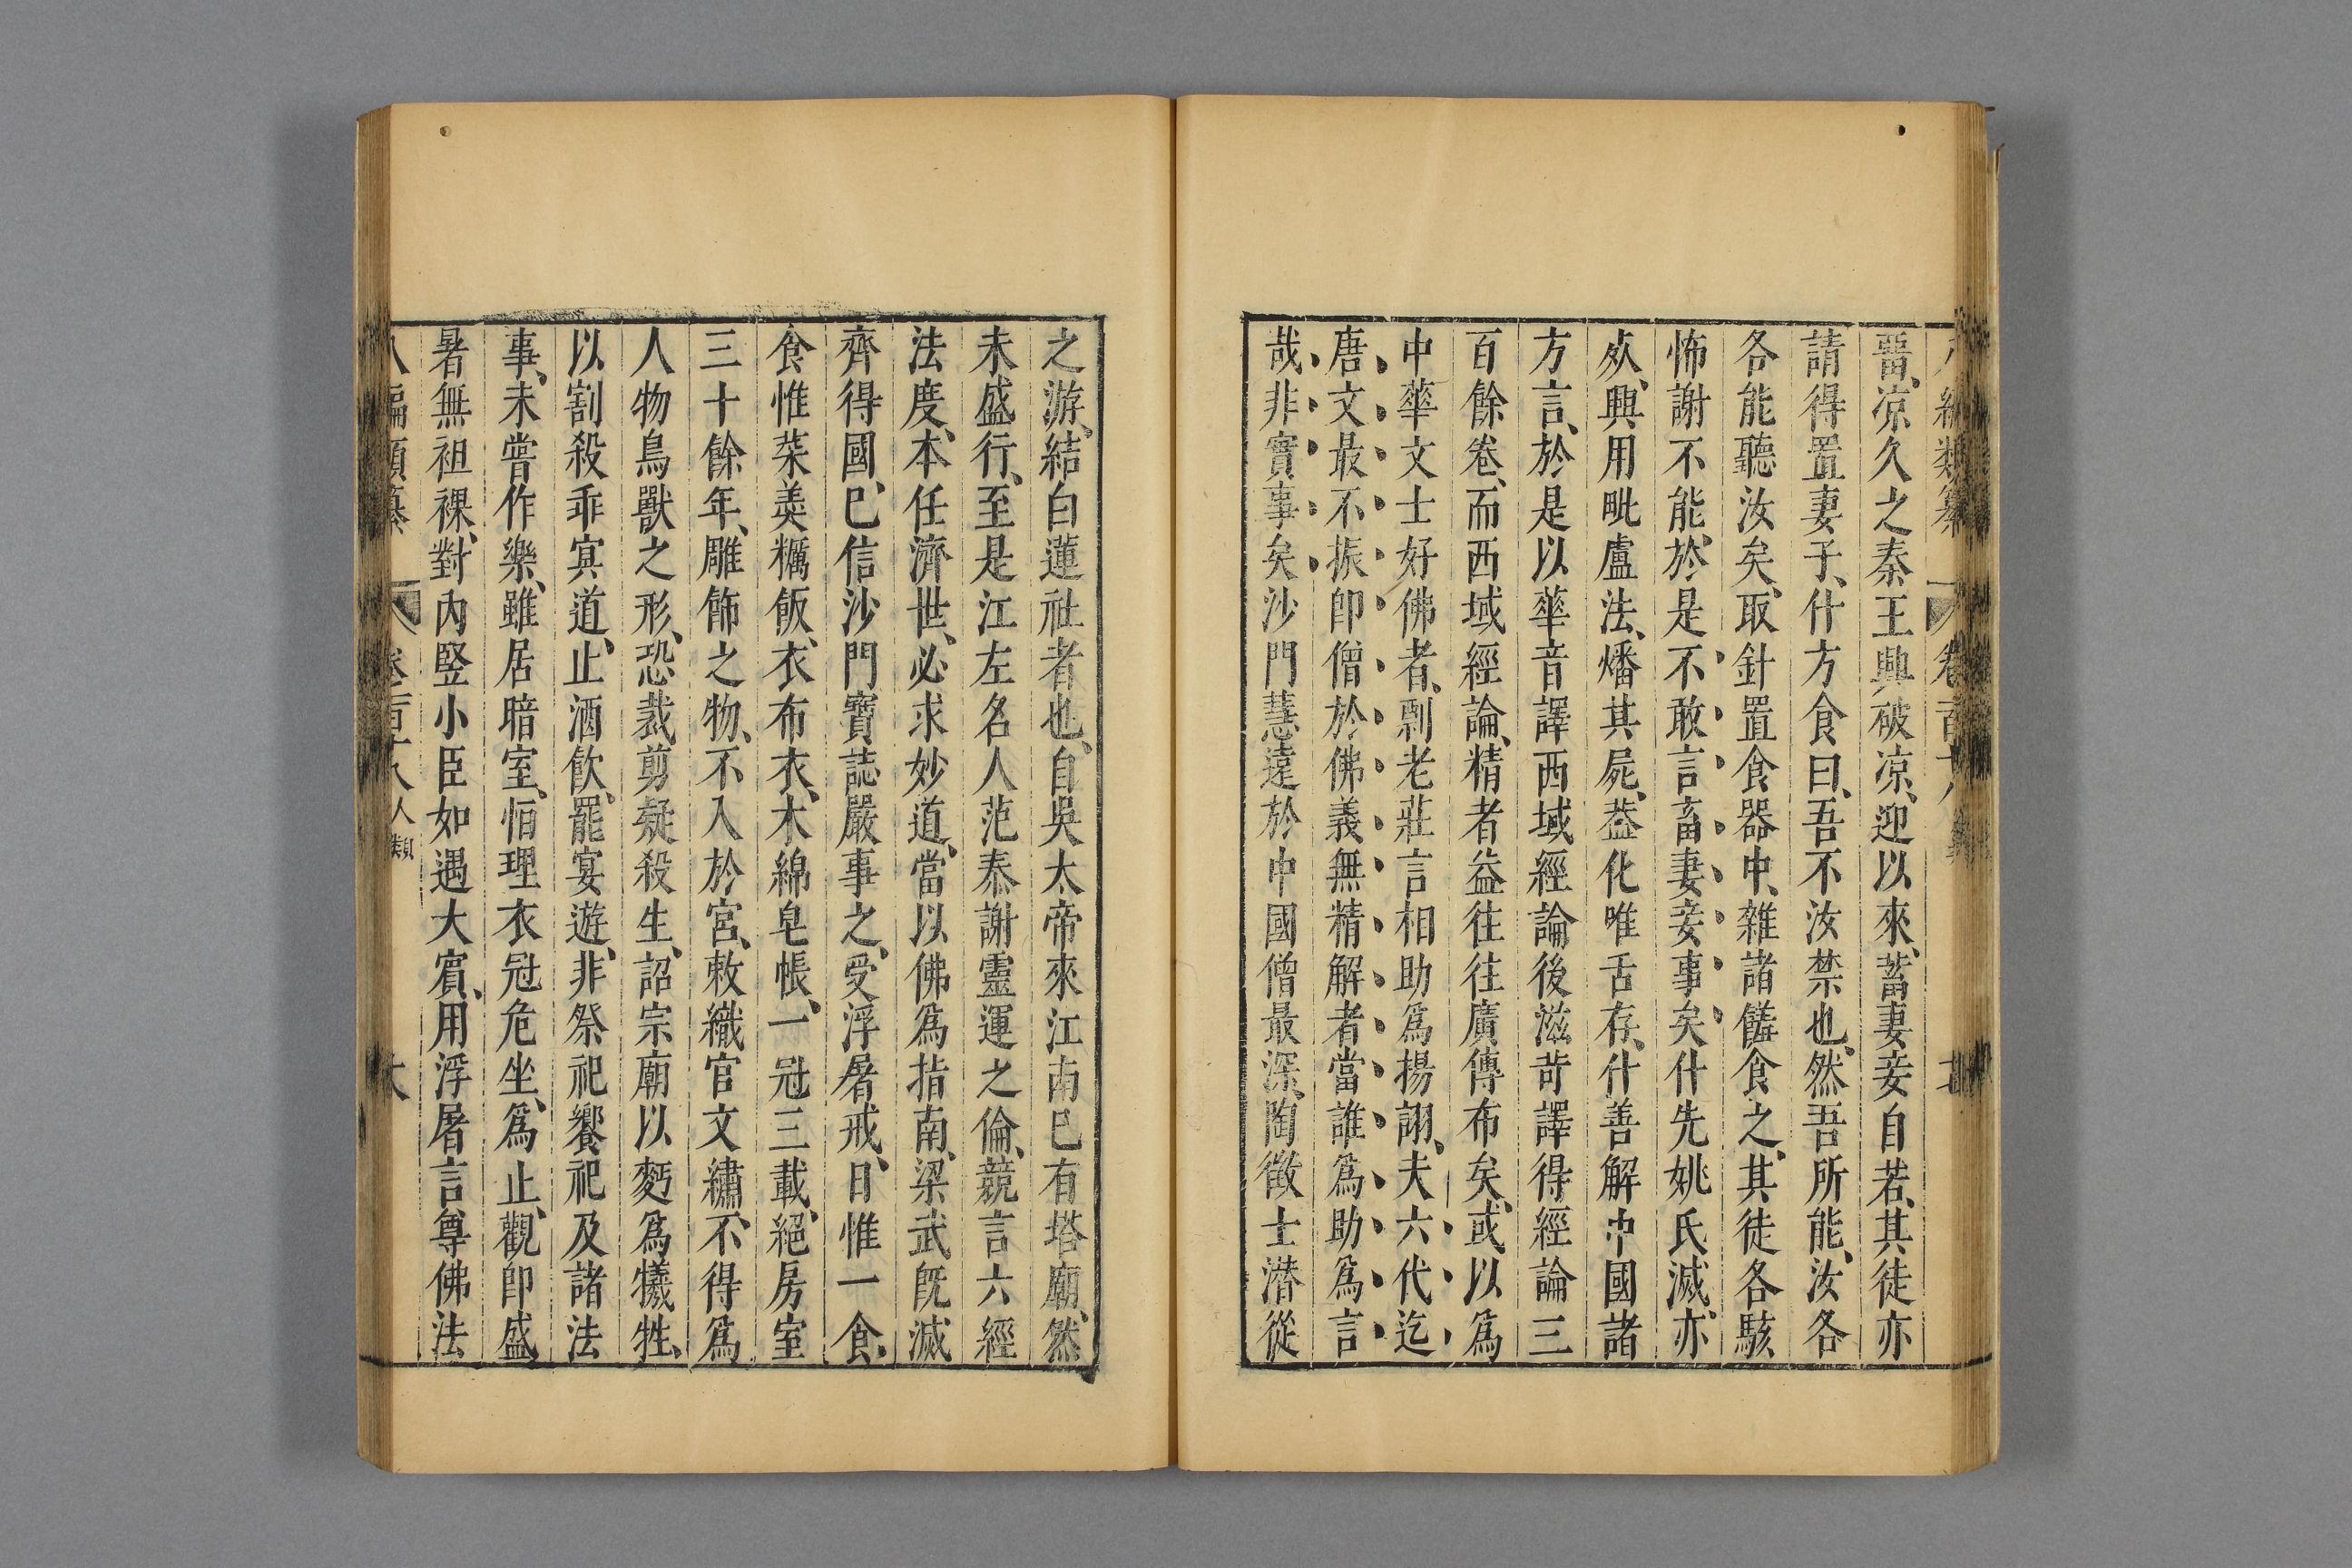 八編類纂 卷百十八
畱凉久之秦王興破凉迎以來蓄妻妾自若其徒亦
請得置妻子什方食曰吾不汝禁也然吾所能汝各
各能聽汝矣取針置食器中雜諸饍食之其徒各駭
怖謝不能於是不敢言畜妻妾事矣什先姚氏滅亦
死興用毗盧法燔其屍葢化唯舌存什善解中國諸
方言於是以華音譯西域經論後滋苛譯得經論三
百餘卷而西域經論精者益往往廣傳布矣或以爲
中華文士好佛者剽老莊言相助爲揚詡夫六代迄
唐文最不振卽僧於佛義無精解者當誰爲助爲言
哉非實事矣沙門慧遠於中國僧最深陶徵士潛從
之游結白蓮社者也自吳太帝來江南已有塔廟然
未盛行至是江左名人范泰謝靈運之倫競言六經
法度本任濟世必求妙道當以佛爲指南梁武旣滅
齊得國已信沙門寶誌嚴事之受浮屠戒日惟一食
食惟菜羮糲飯衣布衣木綿皂帳一冠三載絕房室
三十餘年雕飾之物不入於宮敕織官文繡不得爲
人物鳥獸之形恐裁剪疑殺生詔宗廟以麪爲犧牲
以割殺乖冥道止酒飮罷宴遊非祭祀饗祀及諸法
事未嘗作樂雖居暗室恒理衣冠危坐爲止觀卽盛
暑無袒裸對內竪小臣如遇大賓用浮屠言尊佛法
八編類纂 卷百十八 人類